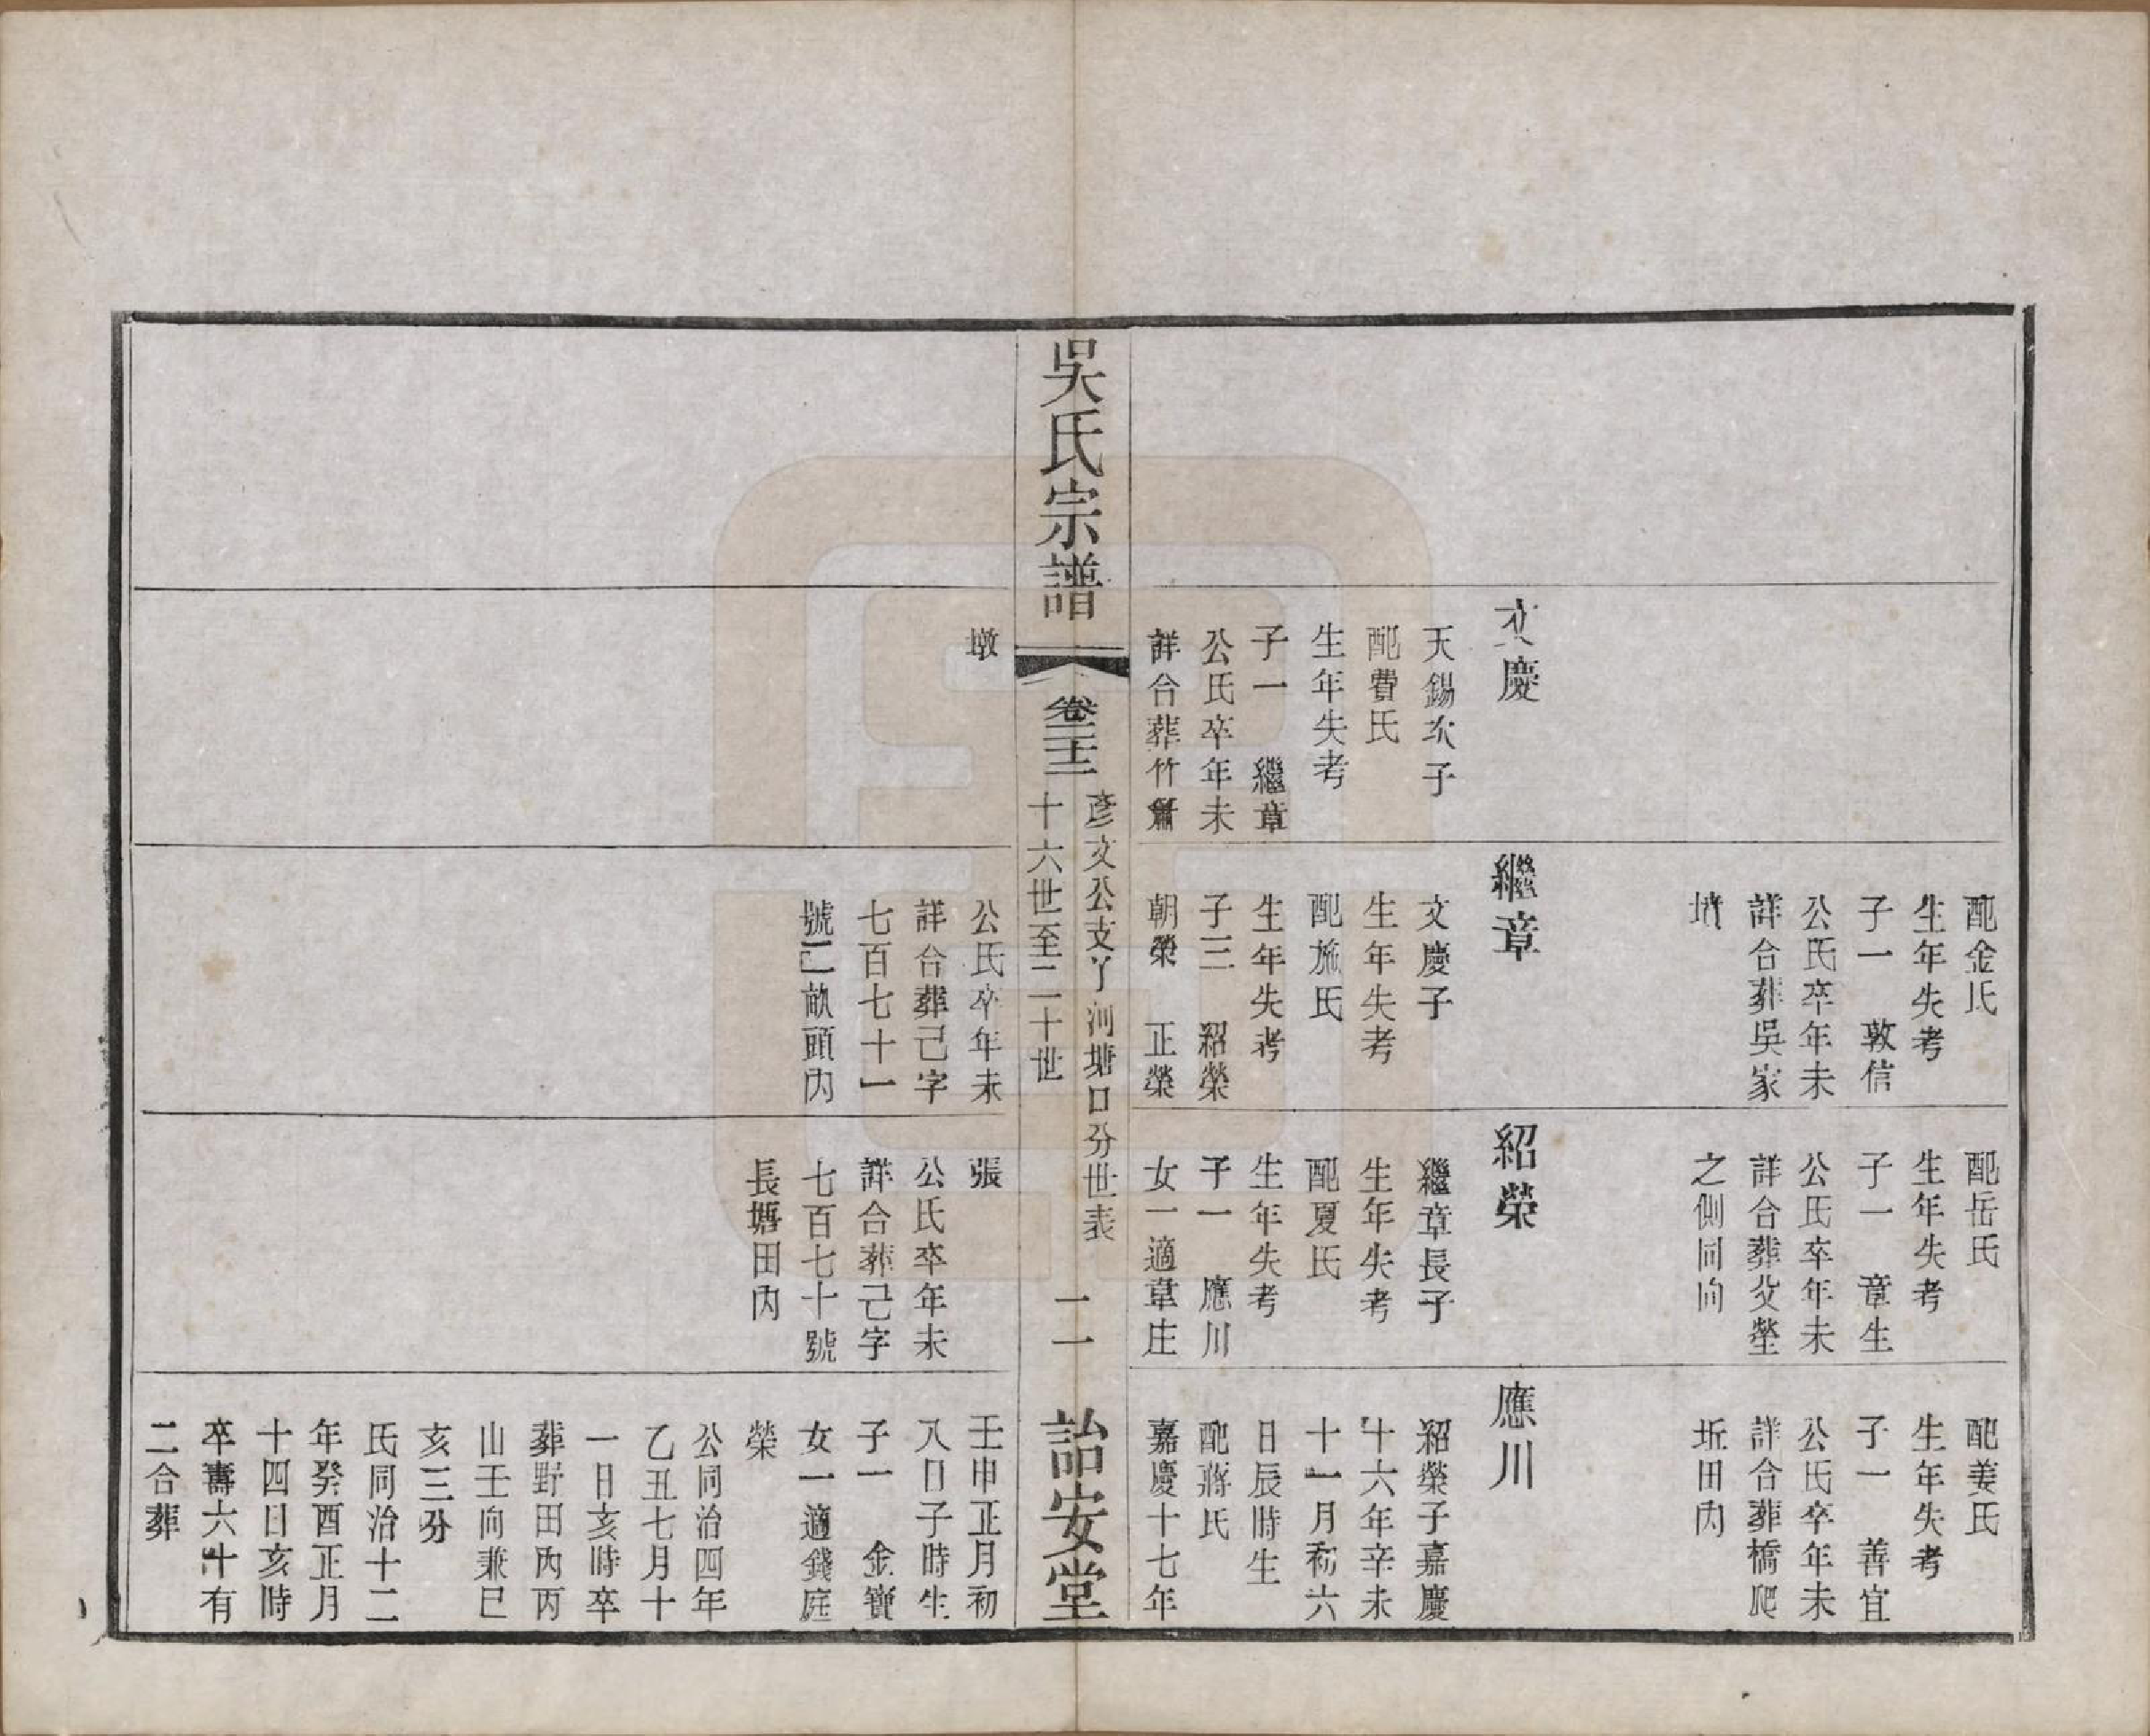 配金氏
生年失考
子一 敦信
公氏卒年未
詳合葬吳家
墳
配岳氏
生年失考
子一 章生
公氏卒年未
詳合葬父塋
之側同向
配姜氏
生年失考
子一 善宜
公氏卒年未
詳合葬橋爬
坵田內
文慶
天錫次子
配費氏
生年失考
子一 繼章
公氏卒年未
詳合葬竹窩
繼章
文慶子
生年失考
配施氏
生年失考
子三 紹榮
朝榮 正榮
紹榮
繼章長子
生年失考
配夏氏
生年失考
子一 應川
女一適韋庄
應川
紹榮子嘉慶
十六年辛未
十一月初六
日辰時生
配蔣氏
嘉慶十七年
吳氏宗譜
卷三十三
彥文公支丫河塘口分世表
十六世至二十世
二一
詒安堂
墩
公氏卒年未
詳合葬己字
七百七十一
號二畝頭內
張
公氏卒年未
詳合葬己字
七百七十號
長塘田內
壬申正月初
八日子時生
子一 金寶
女一適錢庭
榮
公同治四年
乙丑七月十
一日亥時卒
葬野田內丙
山壬向兼巳
亥三分
氏同治十二
年癸酉正月
十四日亥時
卒壽六十有
二合葬